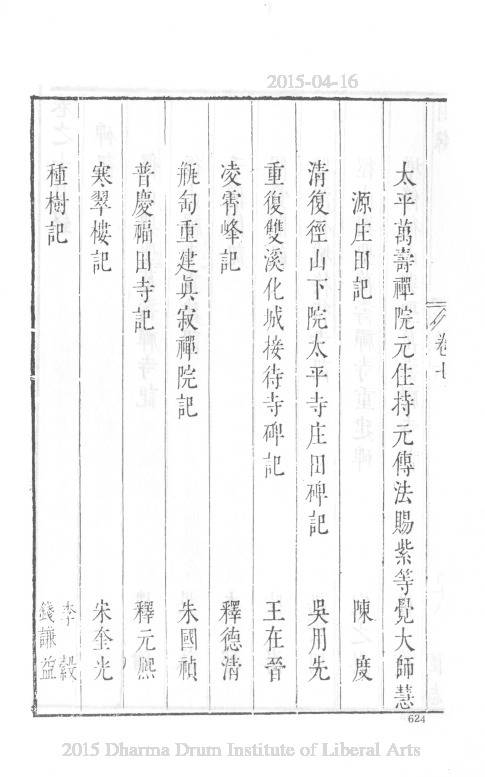 2015-04-16
太平萬壽禪院元住持元傳法賜紫等覺大師慧
源庄田記 陳度
清復徑山下院太平寺庄田碑記 吳用先
重復雙溪化城接待寺碑記 王在晉
凌霄峰記 釋德清
瓶匋重建眞寂禪院記 朱國禎
普慶福田寺記 釋元熙
寒翠樓記 宋奎光
種樹記 李毅 錢謙益
卷七
624
2015 Dharma Drum Institute of Liberal Arts